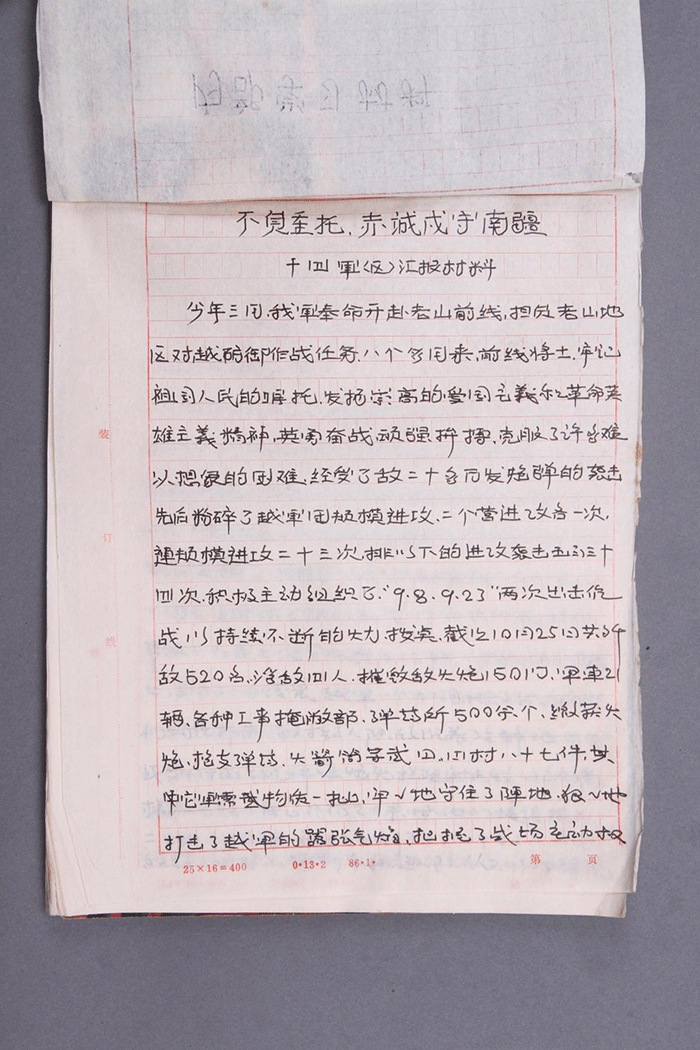 内部学习材料
不负重托，赤诚戍守南疆
十四军（区）汇报材料
今年三月，我军奉命开赴老山前线，担负老山地
区对越防御作战任务，八个多月来，前线将士，牢记
祖国人民的嘱托，发扬崇高的爱国主義和革命英
雄主義精神，英勇奋战，顽强拼搏，克服了许多难
以想象的困难，经受了敌二十多万发炮弹的袭击
先后粉碎了越军团规模进攻、二个营进攻各一次，
連规模进攻二十三次，排以下的进攻袭击五百三十
四次，积极主动组织了“9.8、9.23”两次出击作
战，以持续不断的火力 截止10月25日共歼
敌520名，俘敌四人，摧毁敌火炮150门，軍車21
辆、各种工事掩蔽部、弹 所500余个，缴获火
炮、枪支弹 、火箭筒等武 四 八十七件，其
它軍需 物 一批，牢牢地守住了陣地，狠狠地
打击了越軍的嚣张气焰，把握了战场主动权
装
订
线
25×16=400 0·13·2 86·1· 第 页